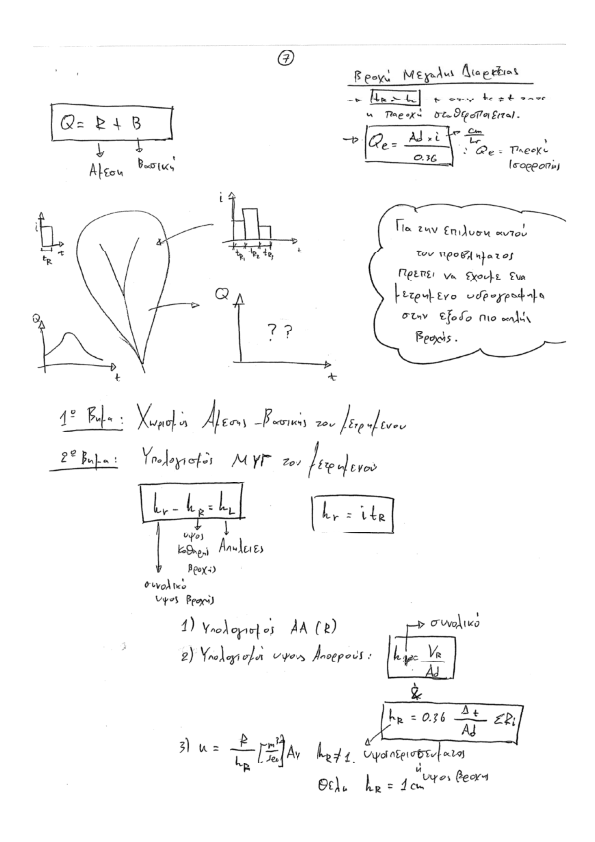 7
Βροχή Μεγάλης Διαρκείας
→ tR > tc
η παροχή σταθεροποιείται.
→ Qe = Ad × i / 0.36 → cm/hr
: Qe = Παροχή Ισορροπίας
Q = R + B
Άμεση Βασική
i
tR
t
i
tR1 tR2 tR3
t
Q
t
Q
? ?
t
Για την επίλυση αυτού
του προβλήματος
πρέπει να έχουμε ένα
μετρημένο υδρογράφημα
στην έξοδο πιο απλής
βροχής.
1ο Βήμα: Χωρισμός Άμεσης - Βασικής του μετρημένου
2ο Βήμα: Υπολογισμός ΜΥΓ του μετρημένου
hr - hR = hL
hr = i tR
υψος καθαρής βροχής
Απώλειες
συνολικό υψος βροχής
1) Υπολογισμός ΑΑ (R)
→ συνολικό
2) Υπολογισμός υψους Απορροής: hR = VR / Ad
hR = 0.36 Δt / Ad ΣRi
3) u = R / hR [m³/sec] Αν hR ≠ 1.
υψος περισσευματος
ή υψος βροχη
Θελω hR = 1cm